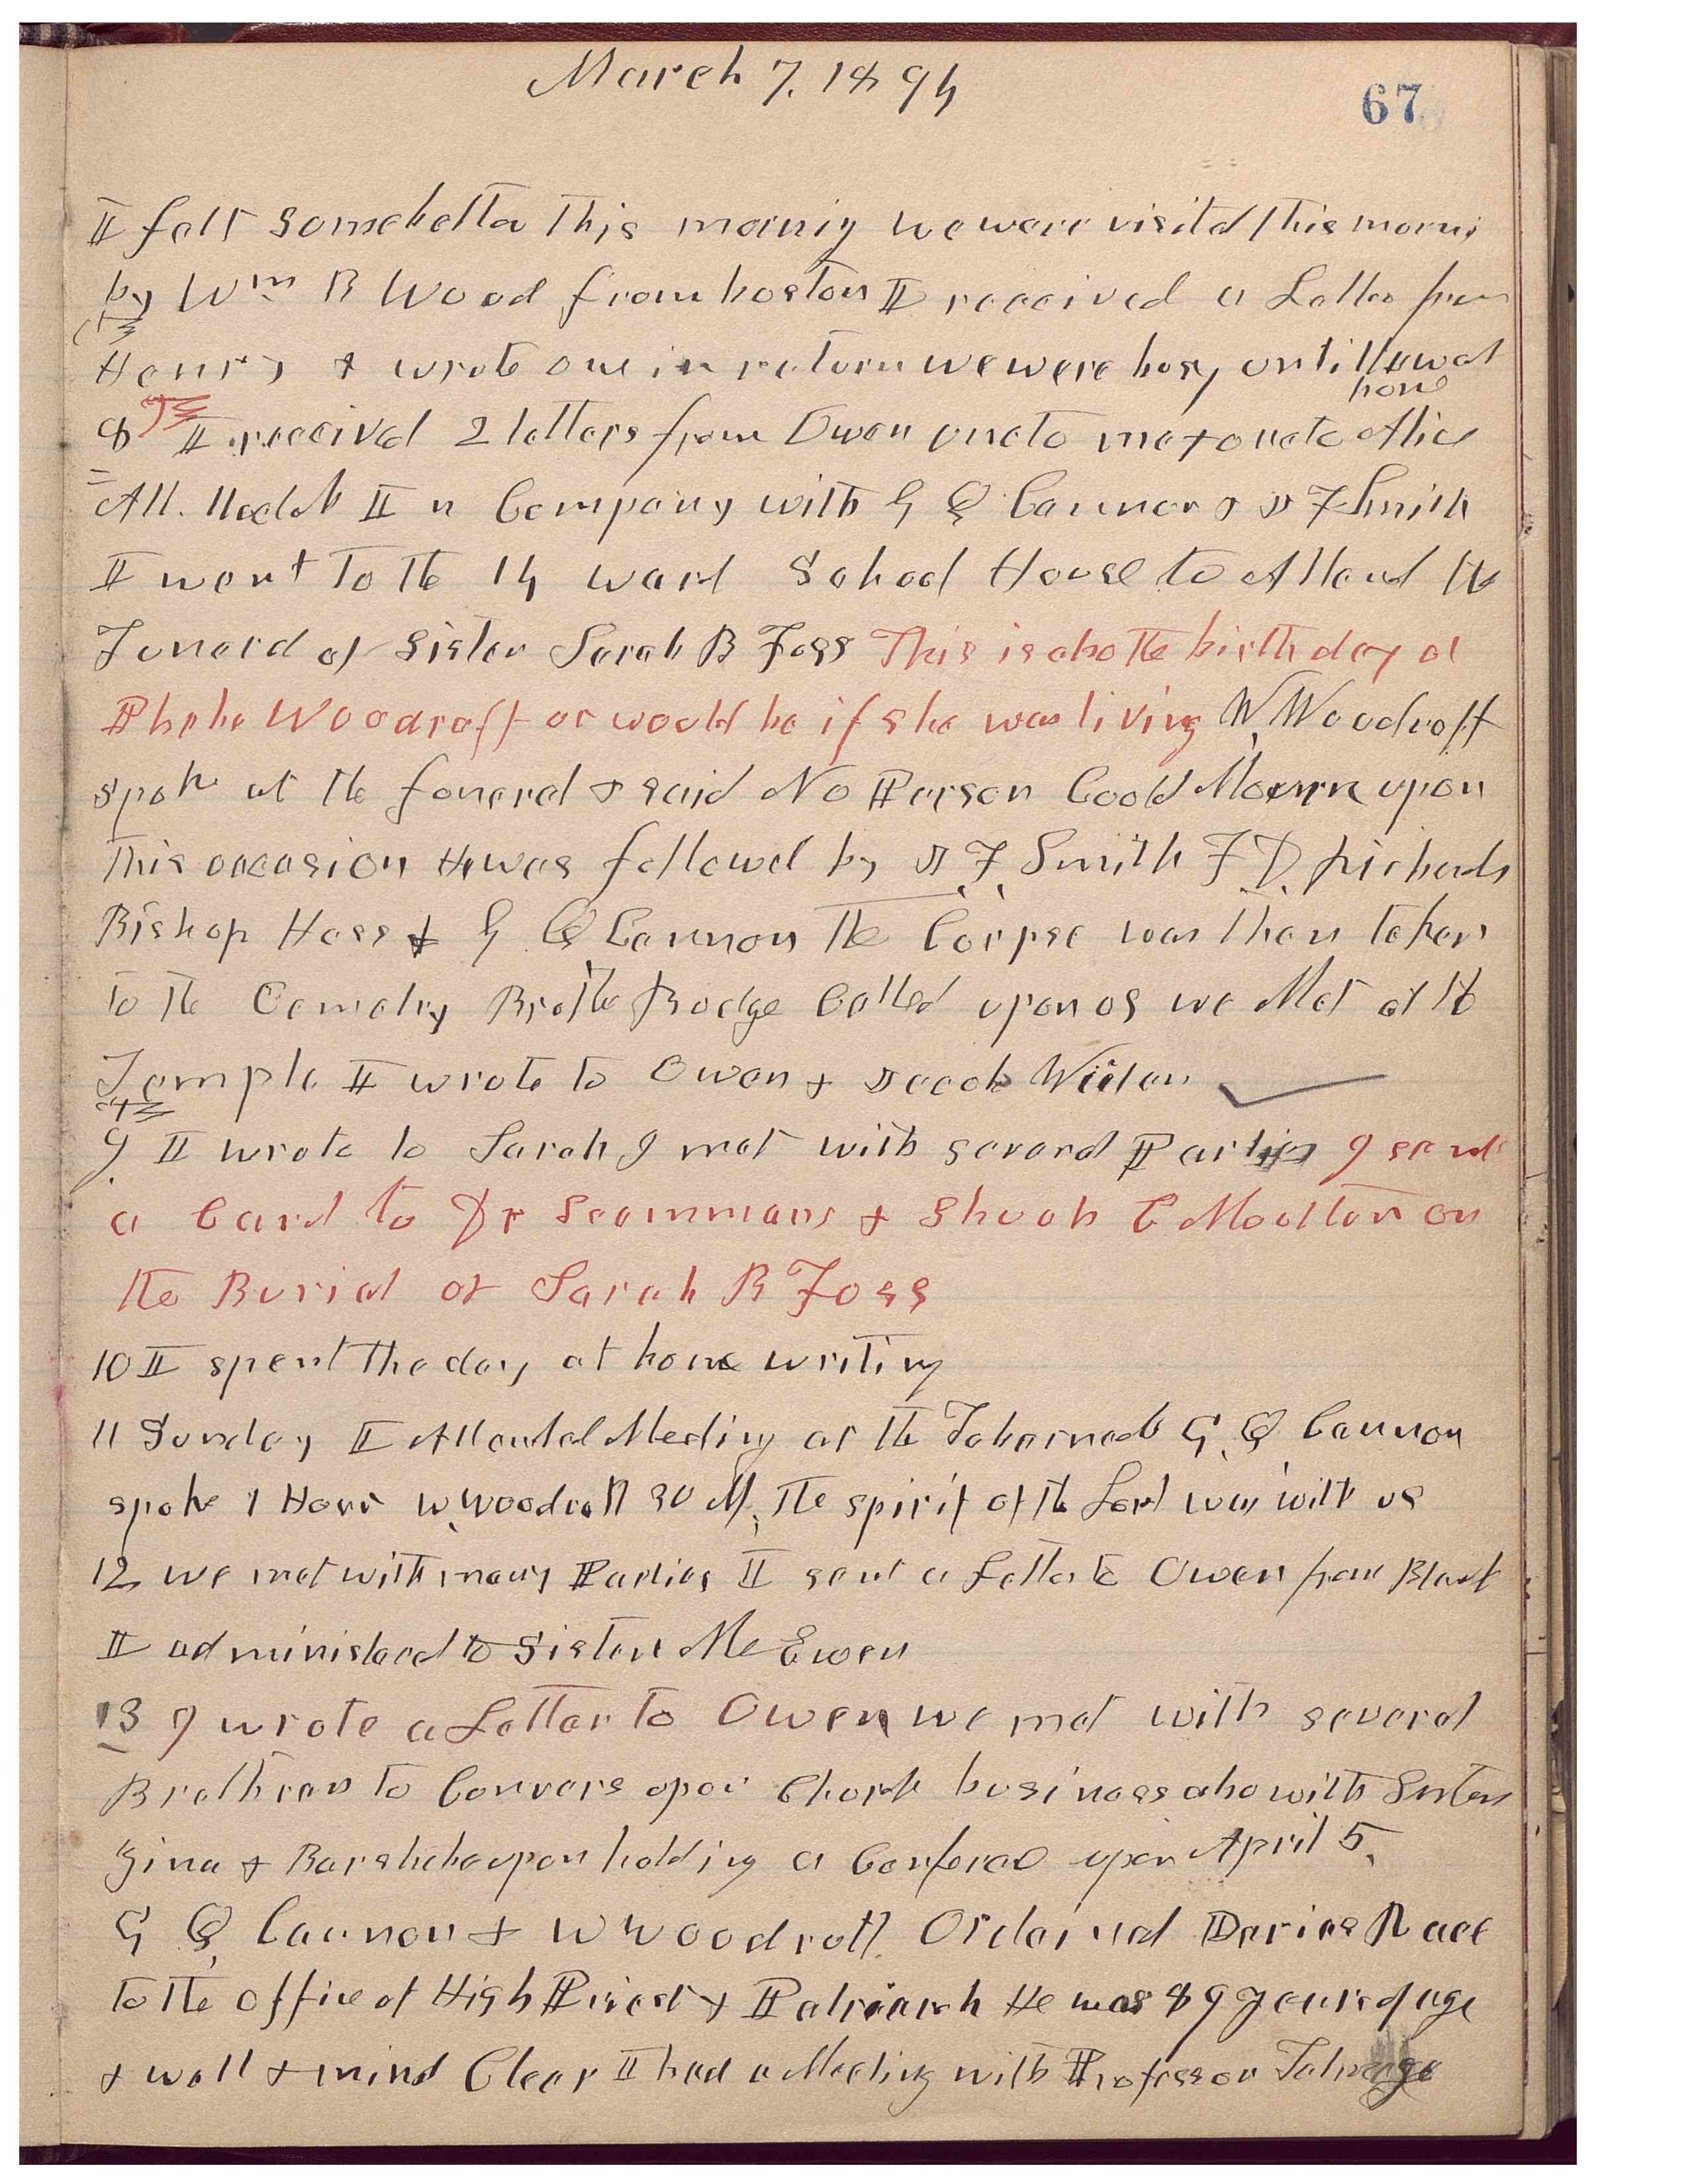 March 7, 1894
67
I felt some better This morning we were visited this morni
by Wm R Wood from boston I received a Letter from
Henry & wrote one in return we were busy until
home
8 I received 2 letters from Owen one to me & one to Alice
At 11. oclok In Company with G Q Cannon & J F Smith
I went to the 14 ward School House to Attend the
Funeral of Sister Sarah B Foss This is also the birth day of
Phebe Woodruff or would be if she was living W, Woodruff
spoke at the funeral & said No Person Could Mourn upon
This occasion He was followed by J, F, Smith F D, Richards
Bishop Hess & G Q Cannon the Corpse was then taken
to the Cemetry Brother Budge Called upon us we Met at the
Temple I wrote to Owen & Jacob
9. I wrote to Sarah I met with several Parties I send
a Card to Dr Scammans & Shuah C Moulton on
the Burial of Sarah B Foss
10 I spent the day at home writing
11 Sunday I Attended Meeting at the Tabernacle G, Q Cannon
spoke 1 Hour W, Woodruff 30 M, The spirit of the Lord was with us
12 we met with many Parties I sent a Letter to Owen from
I administered to Sister McEwen
13 I wrote a Letter to Owen we met with several
Brethren to Convers upon Church business also with Sisters
Zina & Barsheba upon holding a Conferac upon April 5,
G Q, Cannon & W Woodruff. Ordained Darius
to the office of High Priest & Patriarch He was 89 years of age
& well & mind Clear I had a Meeting with Professor Talmage